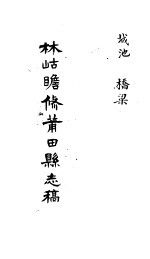 城池 橋梁
林岵瞻修莆田縣志稿